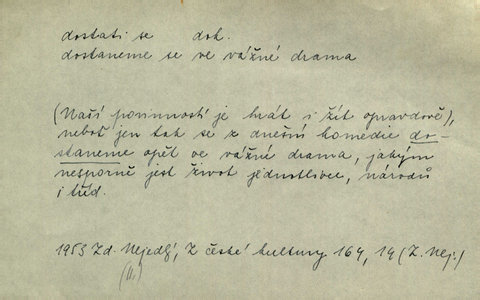 dostati se dok.
dostaneme se ve vážné drama
(Naší povinností je hrát i žít opravdově),
neboť jen tak se z dnešní komedie do-
staneme opět ve vážné drama, jakým
nesporně jest život jednotlivce, národů
i tříd.
1953 Zd. Nejedlý, Z české kultury 164, 14 (Z. Nej.)